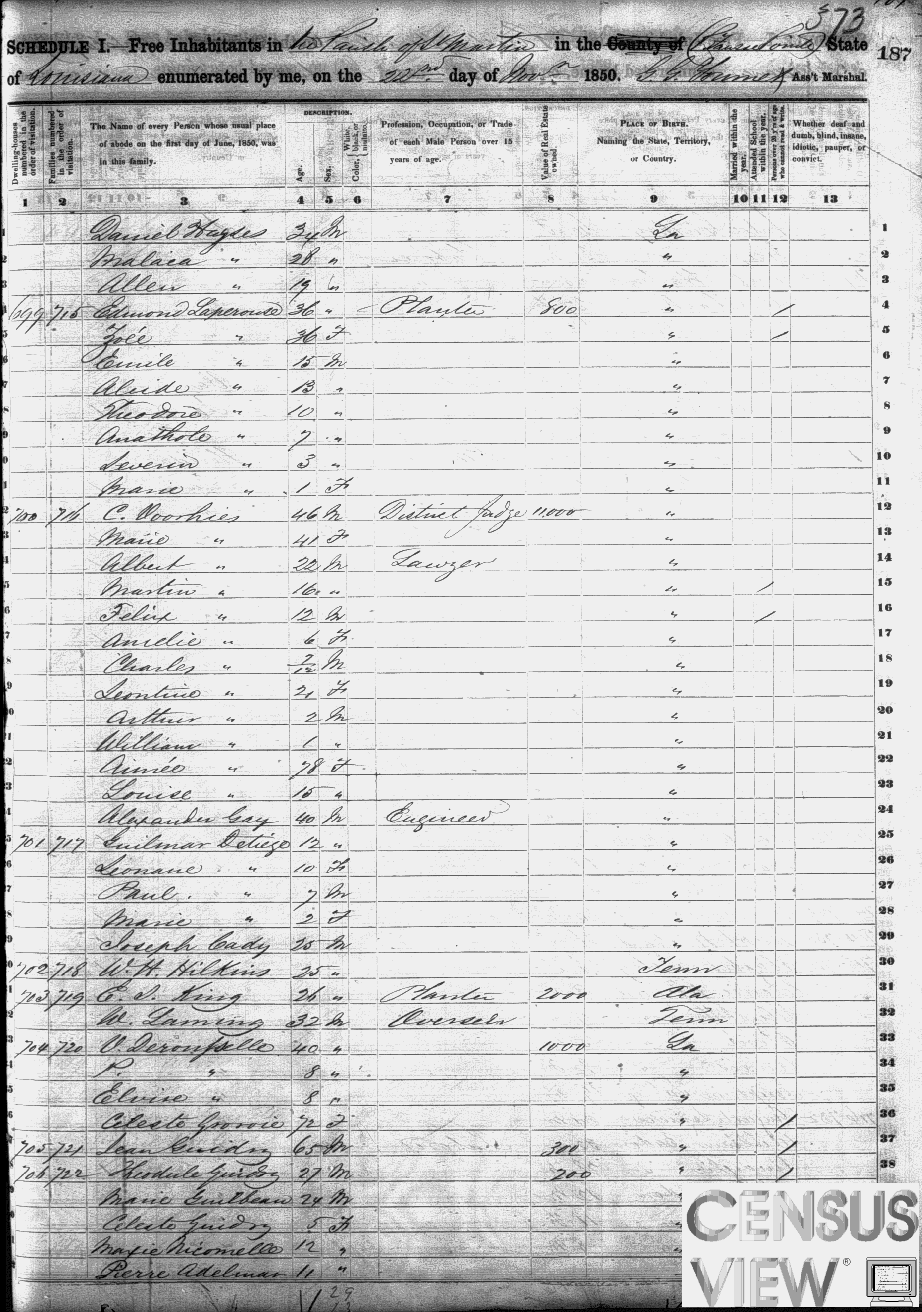 373
187
SCHEDULE I.—Free Inhabitants in the Parish of St Martin in the County of State
of Louisiana enumerated by me, on the 22nd day of Novbr 1850. Ass't Marshal.
Dwelling-houses numbered in the order of visitation.
Families numbered in the order of visitation.
The Name of every Person whose usual place of abode on the first day of June, 1850, was in this family.
DESCRIPTION.
Age.
Sex.
Color, White, black, or mulatto.
Profession, Occupation, or Trade of each Male Person over 15 years of age.
Value of Real Estate owned.
PLACE OF BIRTH. Naming the State, Territory, or Country.
Married within the year.
Attended School within the year.
Persons over 20 y'rs of age who cannot read & write.
Whether deaf and dumb, blind, insane, idiotic, pauper, or convict.
1 2 3 4 5 6 7 8 9 10 11 12 13
Daniel Hayses 34 M La 1
Malaca " 28 " " 2
Allen " 19 " " 3
699 715 Edmond Laperouse 36 " Planter 800 " / 4
Zoée " 36 F " / 5
Emile " 15 M " 6
Alcide " 13 " " 7
Theodore " 10 " " 8
Anathole " 7 " " 9
Severin " 3 " " 10
Marie " 1 F " 11
700 716 C. Voorhies 46 M District Judge 11.000 " 12
Marie " 41 F " 13
Albert " 22 M Lawyer " 14
Martin " 16 " " / 15
Felix " 12 M " / 16
Amelie " 6 F " 17
Charles " 7/12 M " 18
Leontine " 21 F " 19
Arthur " 2 M " 20
William " 1 " " 21
Aimée " 78 F " 22
Louise " 15 " " 23
Alexander Gay 40 M Engineer " 24
701 717 Guilmar Detiege 12 " " 25
Leonane " 10 F " 26
Paul " 7 M " 27
Marie " 2 F " 28
Joseph Cady 25 M " 29
702 718 W. H. Hilkins 25 " Tenn 30
703 719 E. J. King 26 " Planter 2000 Ala 31
W. Laming 32 M Overseer Tenn 32
704 720 V. Derouselle 40 " 1000 La 33
P. " 8 " " 34
Elvise " 8 " " 35
Celeste 72 F " / 36
705 721 Jean Guidry 65 M 300 " / 37
706 722 Theodule Guidry 27 M 200 " / 38
Marie Guilbeau 24 M
Celeste Guidry 5 F "
Maxie Nicomelle 12 " "
Pierre Adelmar 11 "
29
CENSUS
VIEW®